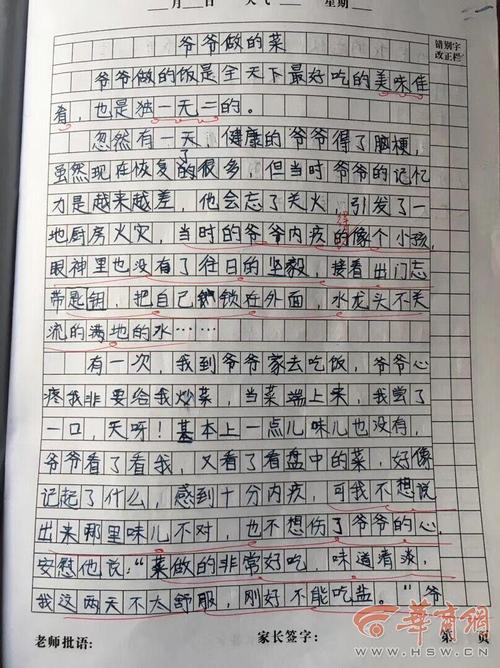 月 日 天气 星期
爷爷做的菜
错别字
改正栏
爷爷做的饭是全天下最好吃的美味佳
肴，也是独一无二的。
忽然有一天，健康的爷爷得了脑梗，
虽然现在恢复了的很多，但当时爷爷的记忆
力是越来越差，他会忘了关火，引发了一
地厨房火灾，当时的爷爷内疚的像个小孩，
得
眼神里也没有了往日的坚毅，接着出门忘
带匙钥，把自己锁在外面，水龙头不关
流的满地的水……
有一次，我到爷爷家去吃饭，爷爷心
疼我非要给我炒菜，当菜端上来，我尝了
一口，天呀！基本上一点儿味儿也没有，
爷爷看了看我，又看了看盘中的菜，好像
记起了什么，感到十分内疚，可我不想说
出来那里味儿不对，也不想伤了爷爷的心，
安慰他说：“菜做的非常好吃，味道着淡，
我这两天不太舒服，刚好不能吃盐。”爷
老师批语： 家长签字： 第 页
华商网
WWW.HSW.CN